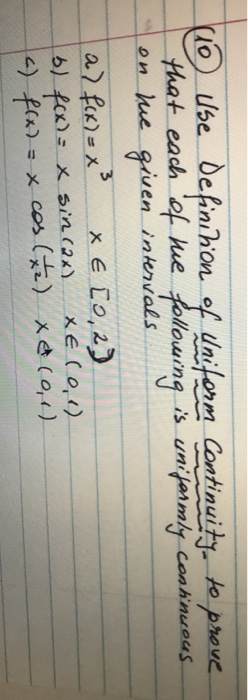 (10) Use Definition of Uniform Continuity to prove
that each of the following is uniformly continuous
on the given intervals.
a) f(x) = x³ x ∈ [0, 2]
b) f(x) = x sin (2x) x ∈ (0, 1)
c) f(x) = x cos (1/x²) x ∈ (0, 1)